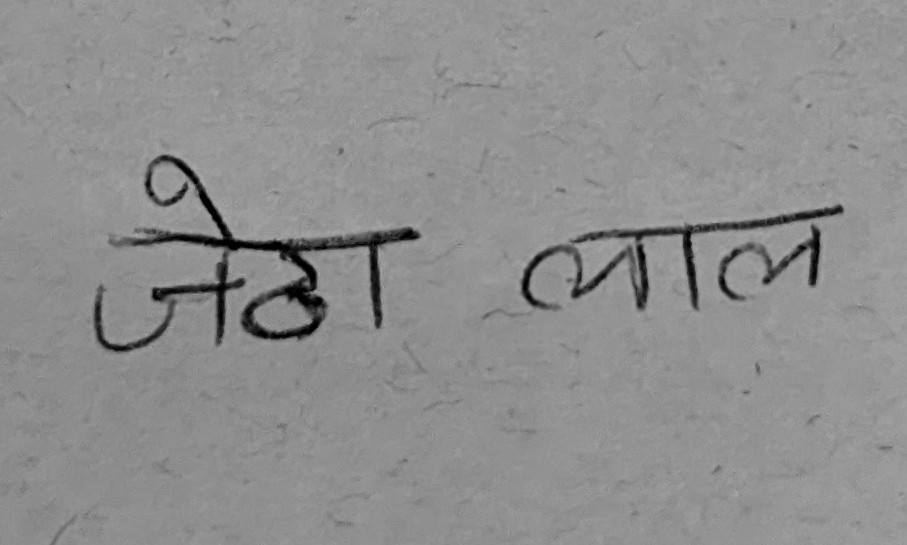 जेठा लाल